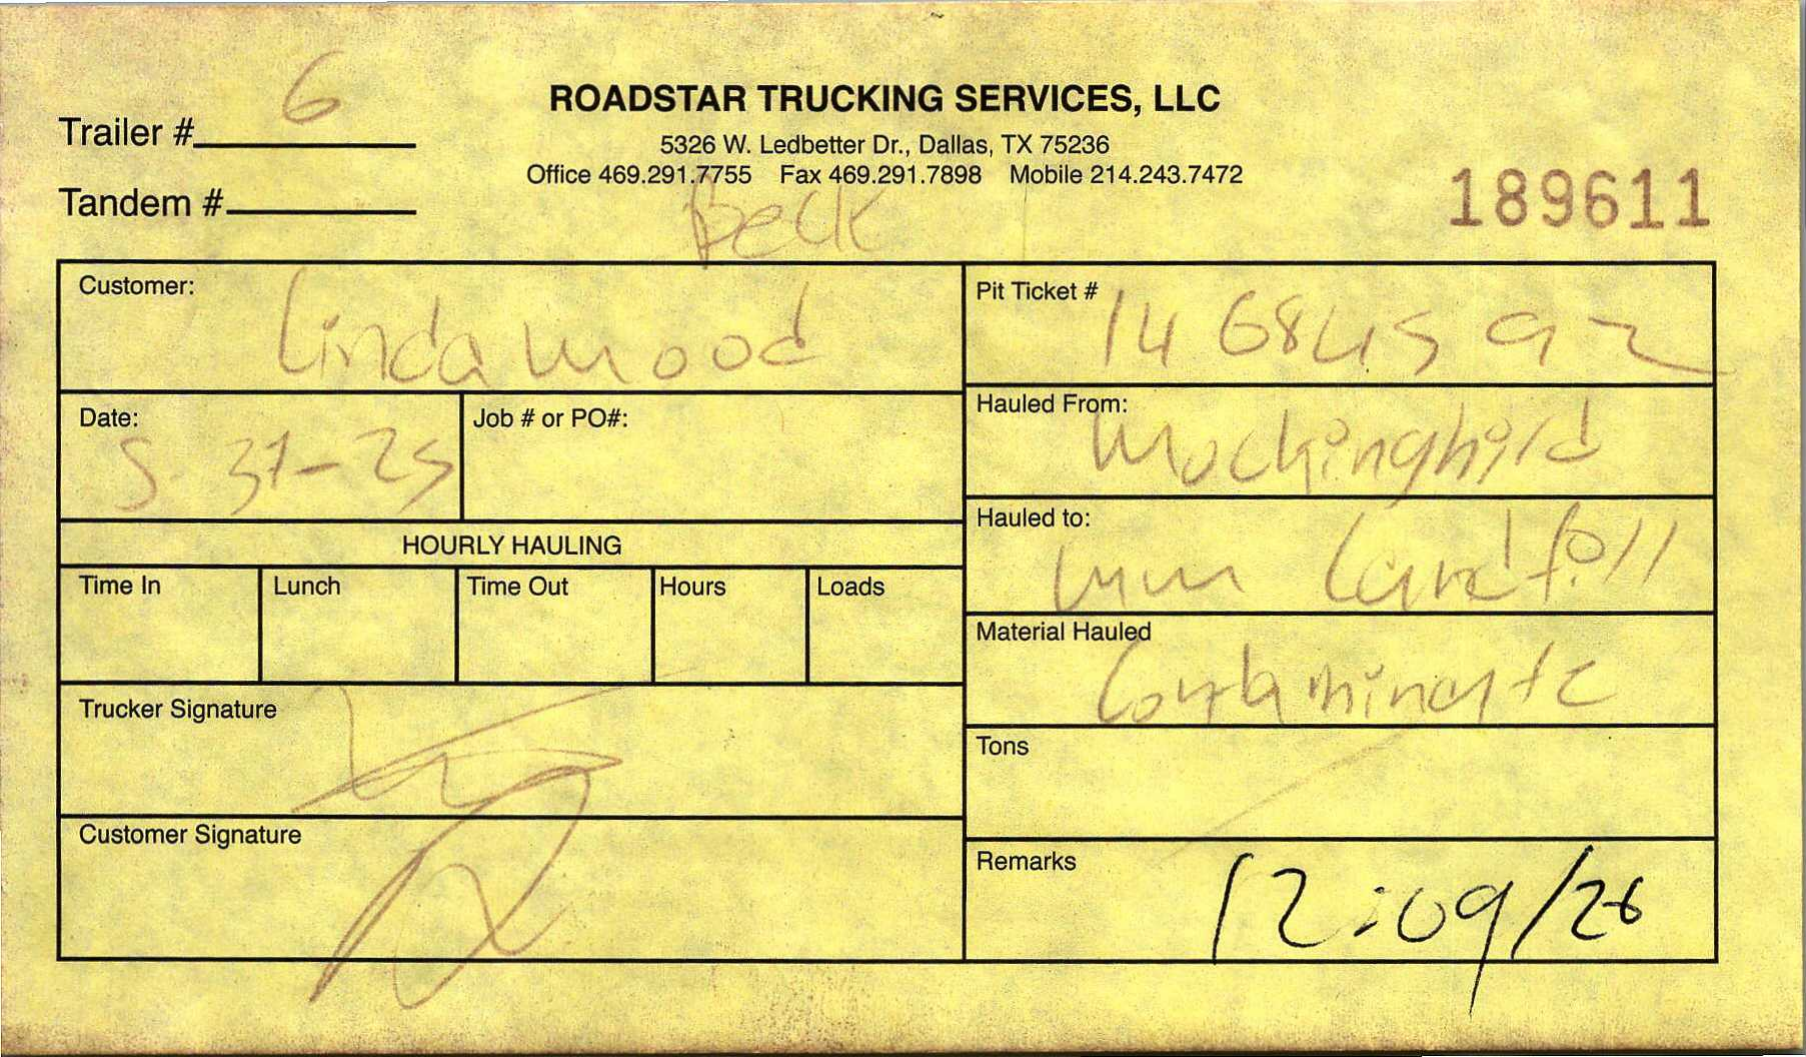 Trailer # 6
ROADSTAR TRUCKING SERVICES, LLC
5326 W. Ledbetter Dr., Dallas, TX 75236
Office 469.291.7755 Fax 469.291.7898 Mobile 214.243.7472
Tandem #
189611
Beck
Customer: Lindamood
Pit Ticket # 14 684592
Date: 5-31-25
Job # or PO#:
Hauled From: Mockingbird
Hauled to: Landfill
HOURLY HAULING
Time In Lunch Time Out Hours Loads
Material Hauled Contaminate
Trucker Signature
Tons
Customer Signature
Remarks 12:09/26